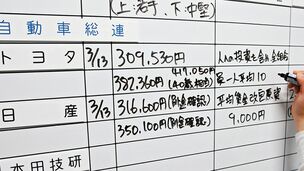 (上:若手、下:中堅)
自動車総連
トヨタ 3/13 309,530円
419,050円
387,360円(40歳相当)
一人平均10
日産 3/13 316,600円(別途確認) 平均賃金改定原資
350,100円(別途確認) 9,000円
本田技研